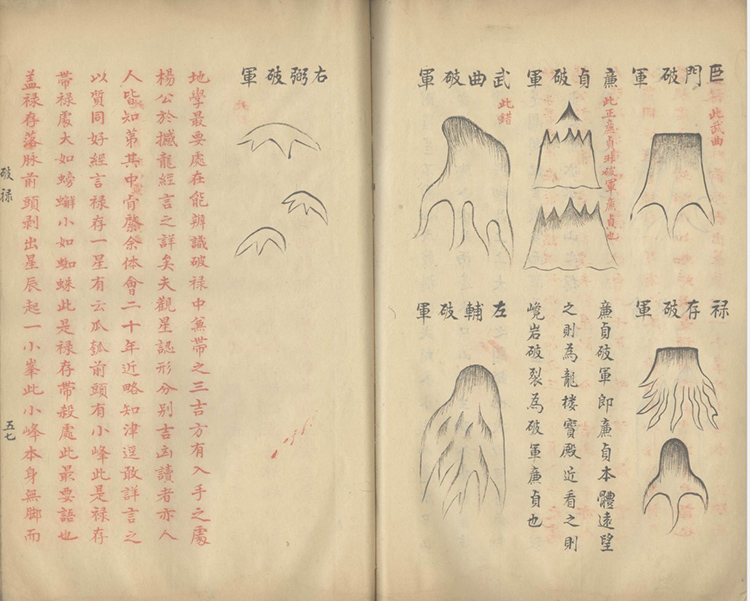 巨門破軍
此武曲
廉貞破軍
此正廉貞非破軍廉貞也
武曲破軍
此錯
禄存破軍
廉貞破軍即廉貞本體遠望
之則為龍樓寶殿近看之則
巉岩破裂為破軍廉貞也
左輔破軍
右弼破軍
地學最要處在能辨識破禄中兼帶之三吉方有入手之處
楊公於撼龍經言之詳矣夫觀星認形分別吉凶讀者亦人
人皆知第其中肯綮余体會二十年近略知津逕敢詳言之
以質同好經言禄存一星有云瓜瓠前頭有小峰此是禄存
帶禄處大如螃蠏小如蜘蛛此是禄存帶殺處此最要語也
盖禄存落脉前頭剥出星辰起一小峯此小峰本身無脚而
破禄
五七